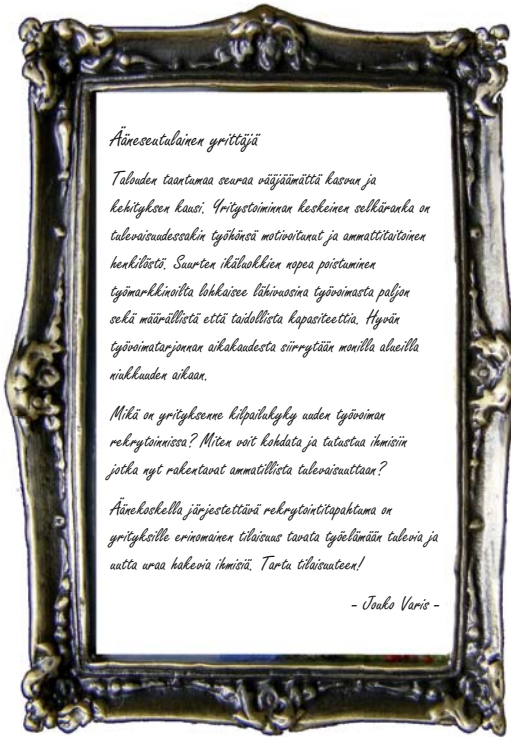 Ääneseutulainen yrittäjä
Talouden taantumaa seuraa vääjäämättä kasvun ja
kehityksen kausi. Yritystoiminnan keskeinen selkäranka on
tulevaisuudessakin työhönsä motivoitunut ja ammattitaitoinen
henkilöstö. Suurten ikäluokkien nopea poistuminen
työmarkkinoilta lohkaisee lähivuosina työvoimasta paljon
sekä määrällistä että taidollista kapasiteettia. Hyvän
työvoimatarjonnan aikakaudesta siirrytään monilla alueilla
niukkuuden aikaan.
Mikä on yrityksenne kilpailukyky uuden työvoiman
rekrytoinnissa? Miten voit kohdata ja tutustua ihmisiin
jotka nyt rakentavat ammatillista tulevaisuuttaan?
Äänekoskella järjestettävä rekrytointitapahtuma on
yrityksille erinomainen tilaisuus tavata työelämään tulevia ja
uutta uraa hakevia ihmisiä. Tartu tilaisuuteen!
- Jouko Varis -